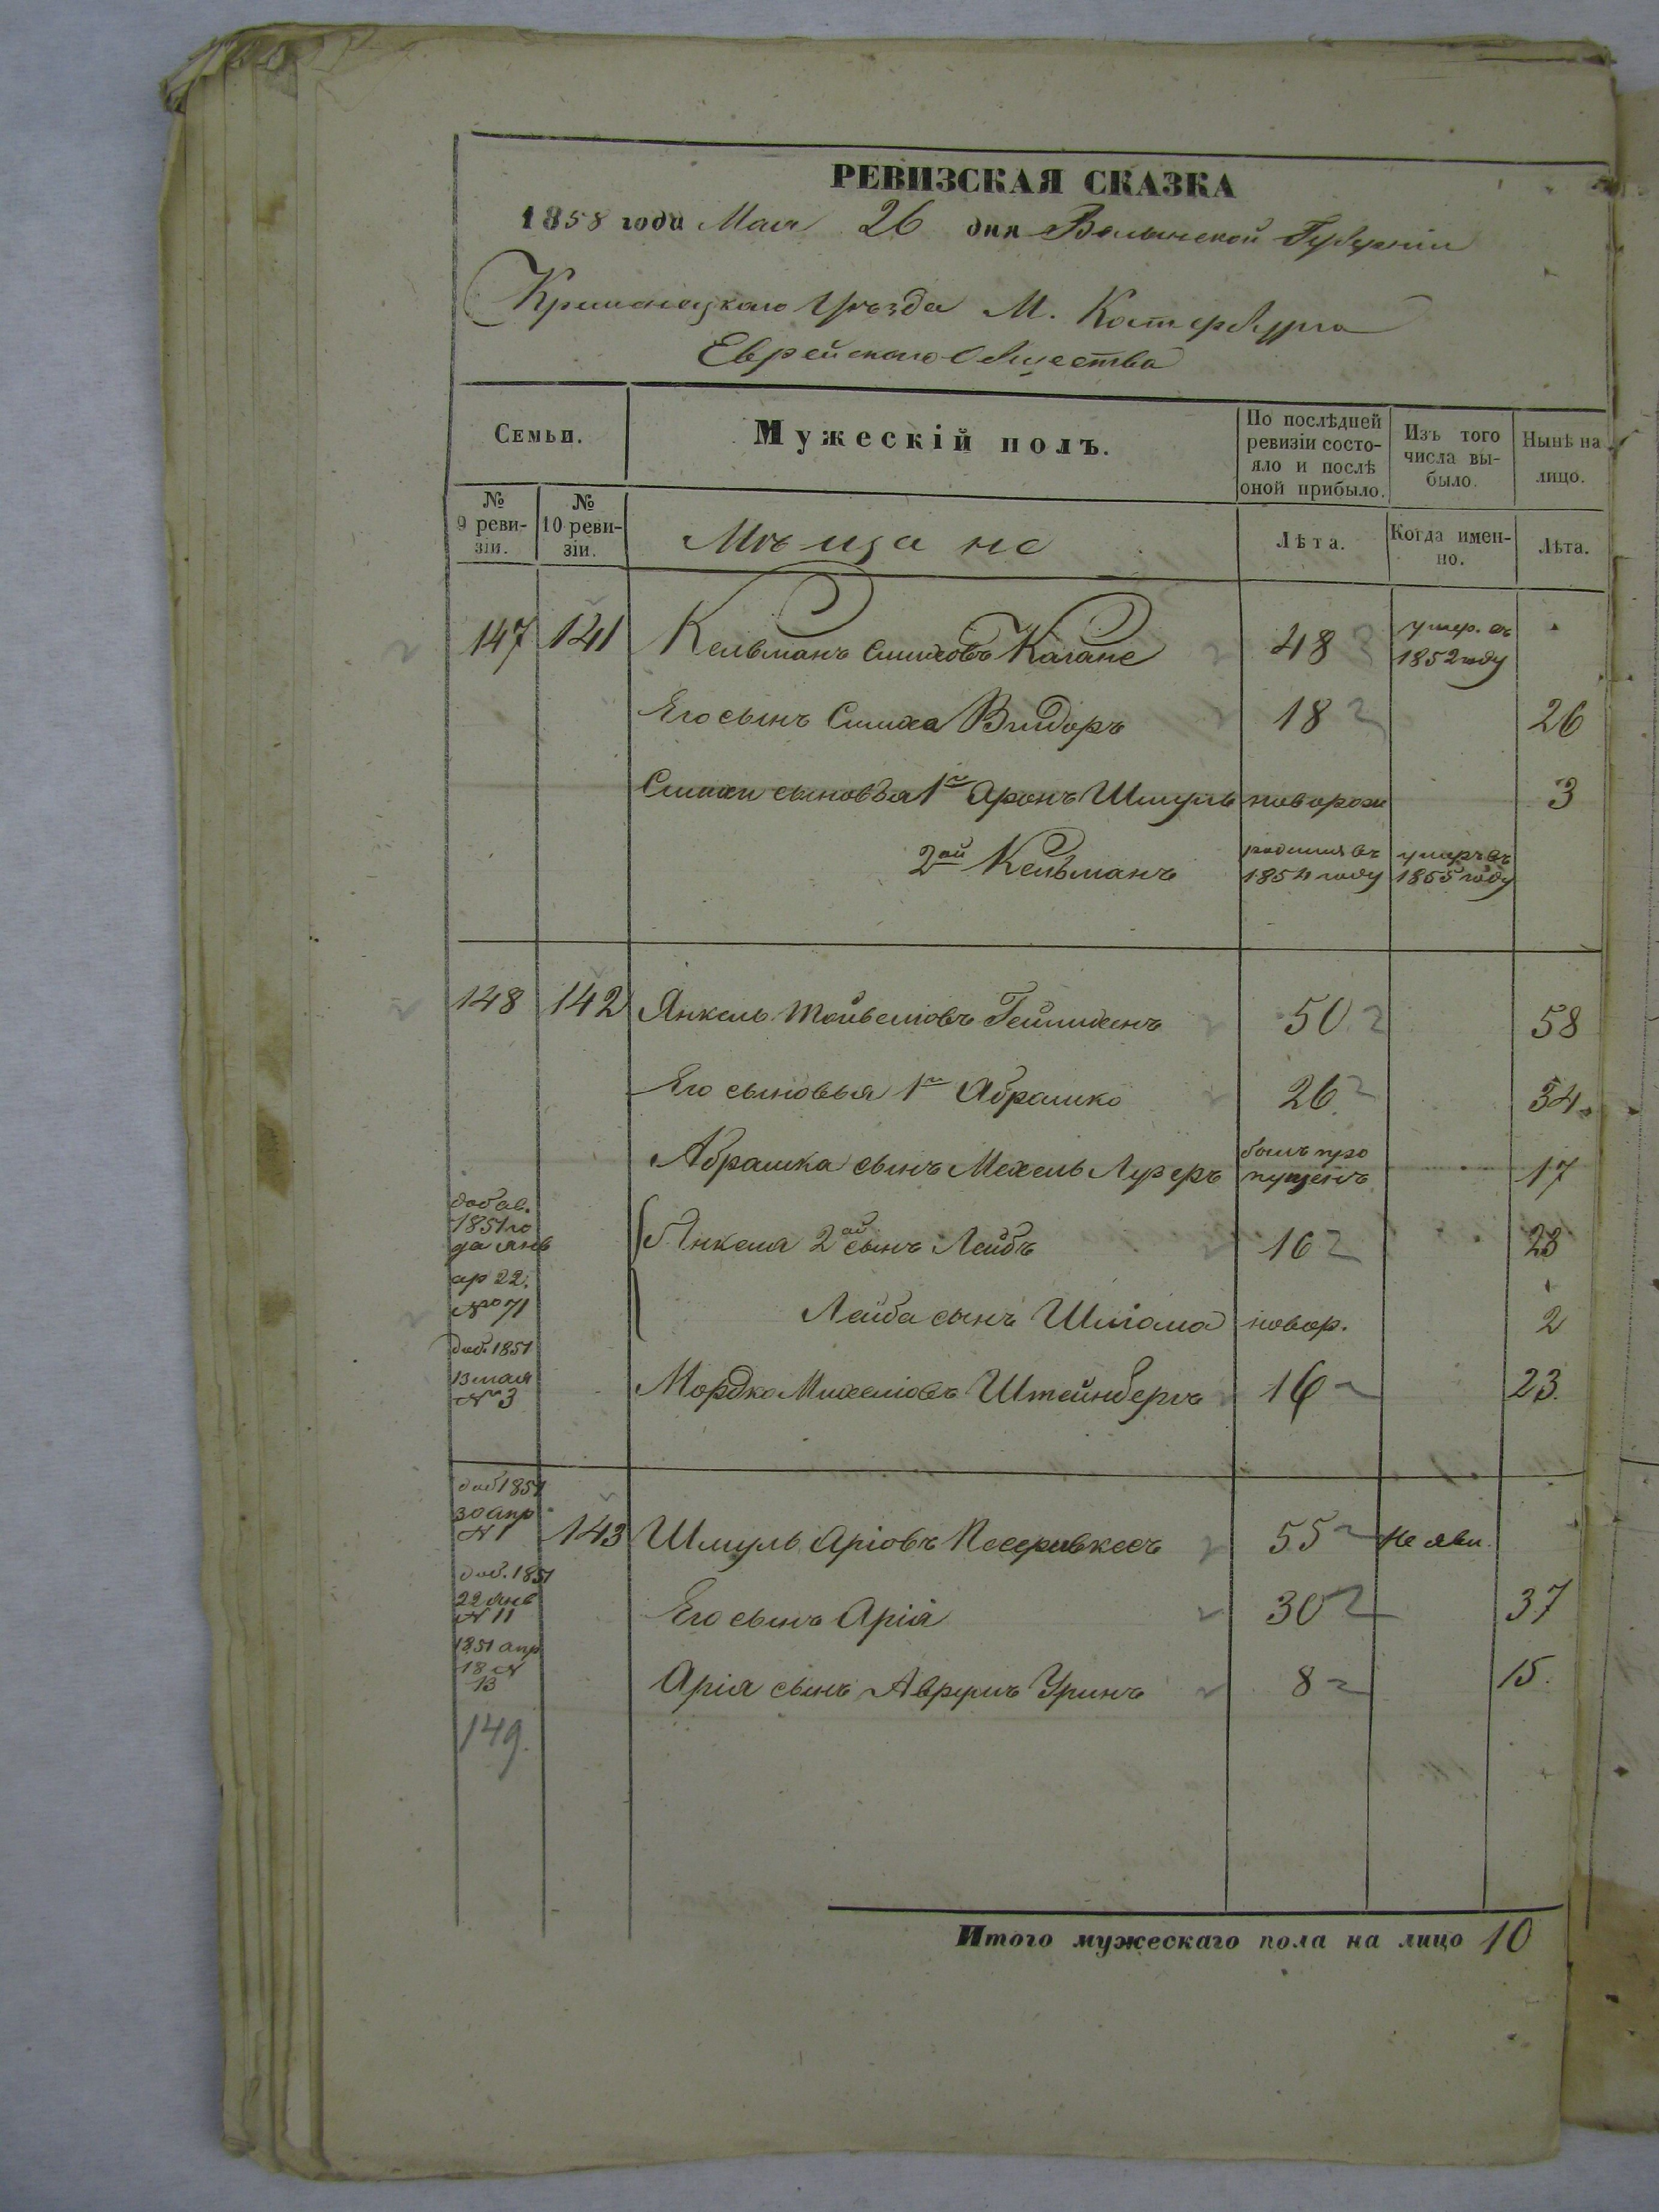 РЕВИЗСКАЯ СКАЗКА
1858 года Мая 26 дня Волынской Губернии
Кременецкаго Уѣзда М. Катербурга
Еврейскаго Общества
Семьи.
Мужескій полъ.
По послѣдней ревизіи состояло и послѣ оной прибыло.
Изъ того числа выбыло.
Нынѣ на лицо.
№ 9 ревизіи.
№ 10 ревизіи.
Мѣщане
Лѣта.
Когда именно.
Лѣта.
147 141 Кельманъ Симховъ Кагане 48 умер. въ 1852 году
Его сынъ Симха Вигдоръ 18 26
Симхи сыновья 1й Аронъ Шмуль новорож 3
2ой Кельманъ родился въ 1854 году умеръ въ 1855 году
148 142 Янкель Тойвеліовъ 50 58
Его сыновья 1й Абрашко 26 34
Абрашка сынъ Мехель Лузеръ былъ пропущенъ 17
добав. 1851 года январ 22. № 71
Янкеля 2ой сынъ Лейбъ 16 23
Лейба сынъ Шліома новор. 2
доб. 1851 13 мая № 3
Мордко Михеліовъ Штейнбергъ 16 23.
доб 1851 30 апр № 1
143 Шмуль Аріовъ 55 Не яви.
доб. 1851 22 янв № 11
Его сынъ Арія 30 37
1851 апр 18 № 13
Арія сынъ Аврумъ Уринъ 8 15.
149.
Итого мужескаго пола на лицо 10